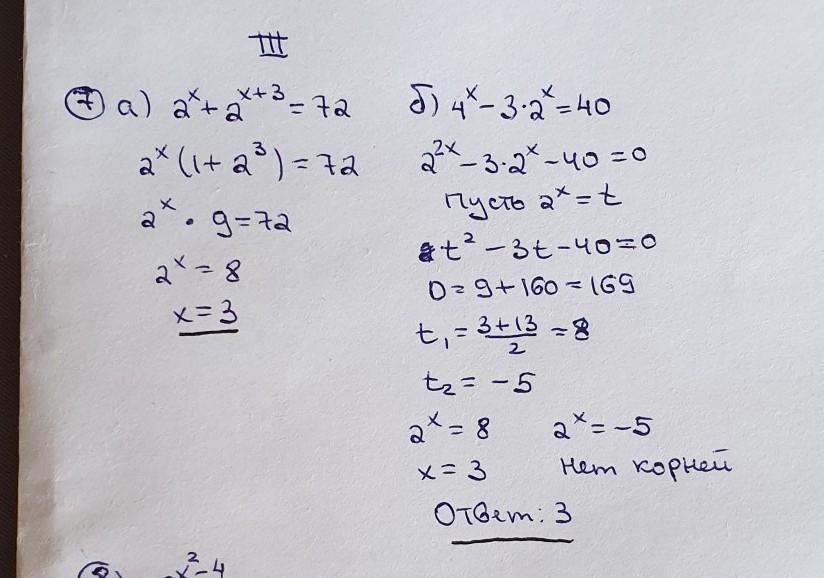 III
7 а) 2^x + 2^(x+3) = 72
2^x (1 + 2^3) = 72
2^x · 9 = 72
2^x = 8
x = 3
б) 4^x - 3·2^x = 40
2^(2x) - 3·2^x - 40 = 0
Пусть 2^x = t
t² - 3t - 40 = 0
D = 9 + 160 = 169
t₁ = (3+13)/2 = 8
t₂ = -5
2^x = 8 2^x = -5
x = 3 Нет корней
Ответ: 3
x² - 4